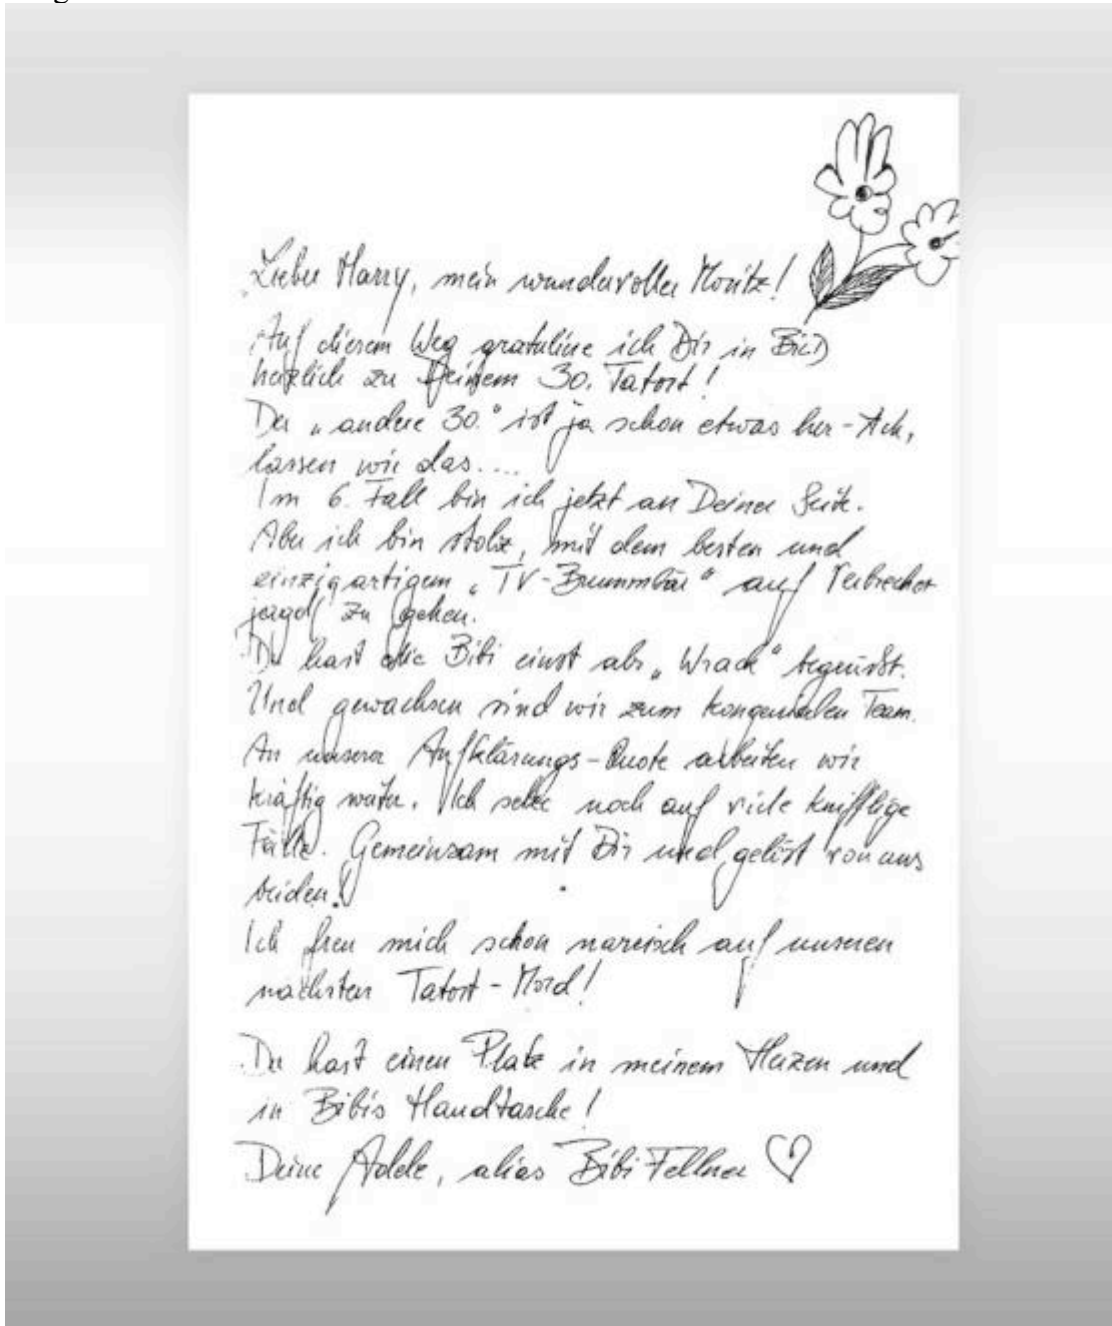 Lieber Harry, mein wundervoller Moritz!
Auf diesem Weg gratuliere ich Dir in BILD
herzlich zu Deinem 30. Tatort!
Der „andere 30.“ ist ja schon etwas her - Ach,
lassen wir das....
Im 6. Fall bin ich jetzt an Deiner Seite.
Aber ich bin stolz, mit dem besten und
einzigartigem „TV-Brummbär“ auf Verbrecher
jagd zu gehen.
Du hast die Bibi einst als „Wrack“ begrüßt.
Und gewachsen sind wir zum kongenialen Team.
An unserer Aufklärungs-Quote arbeiten wir
kräftig weiter. Ich setze noch auf viele knifflige
Fälle. Gemeinsam mit Dir und gelöst von uns
beiden!
Ich freu mich schon narrisch auf unseren
nächsten Tatort-Mord!
Du hast einen Platz in meinem Herzen und
in Bibis Handtasche!
Deine Adele, alias Bibi Fellner